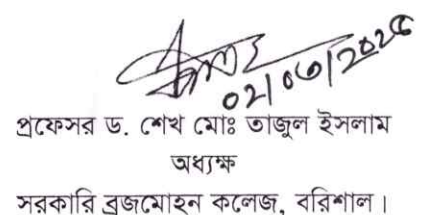 ০২/০৩/২০২৫
প্রফেসর ড. শেখ মোঃ তাজুল ইসলাম
অধ্যক্ষ
সরকারি ব্রজমোহন কলেজ, বরিশাল।